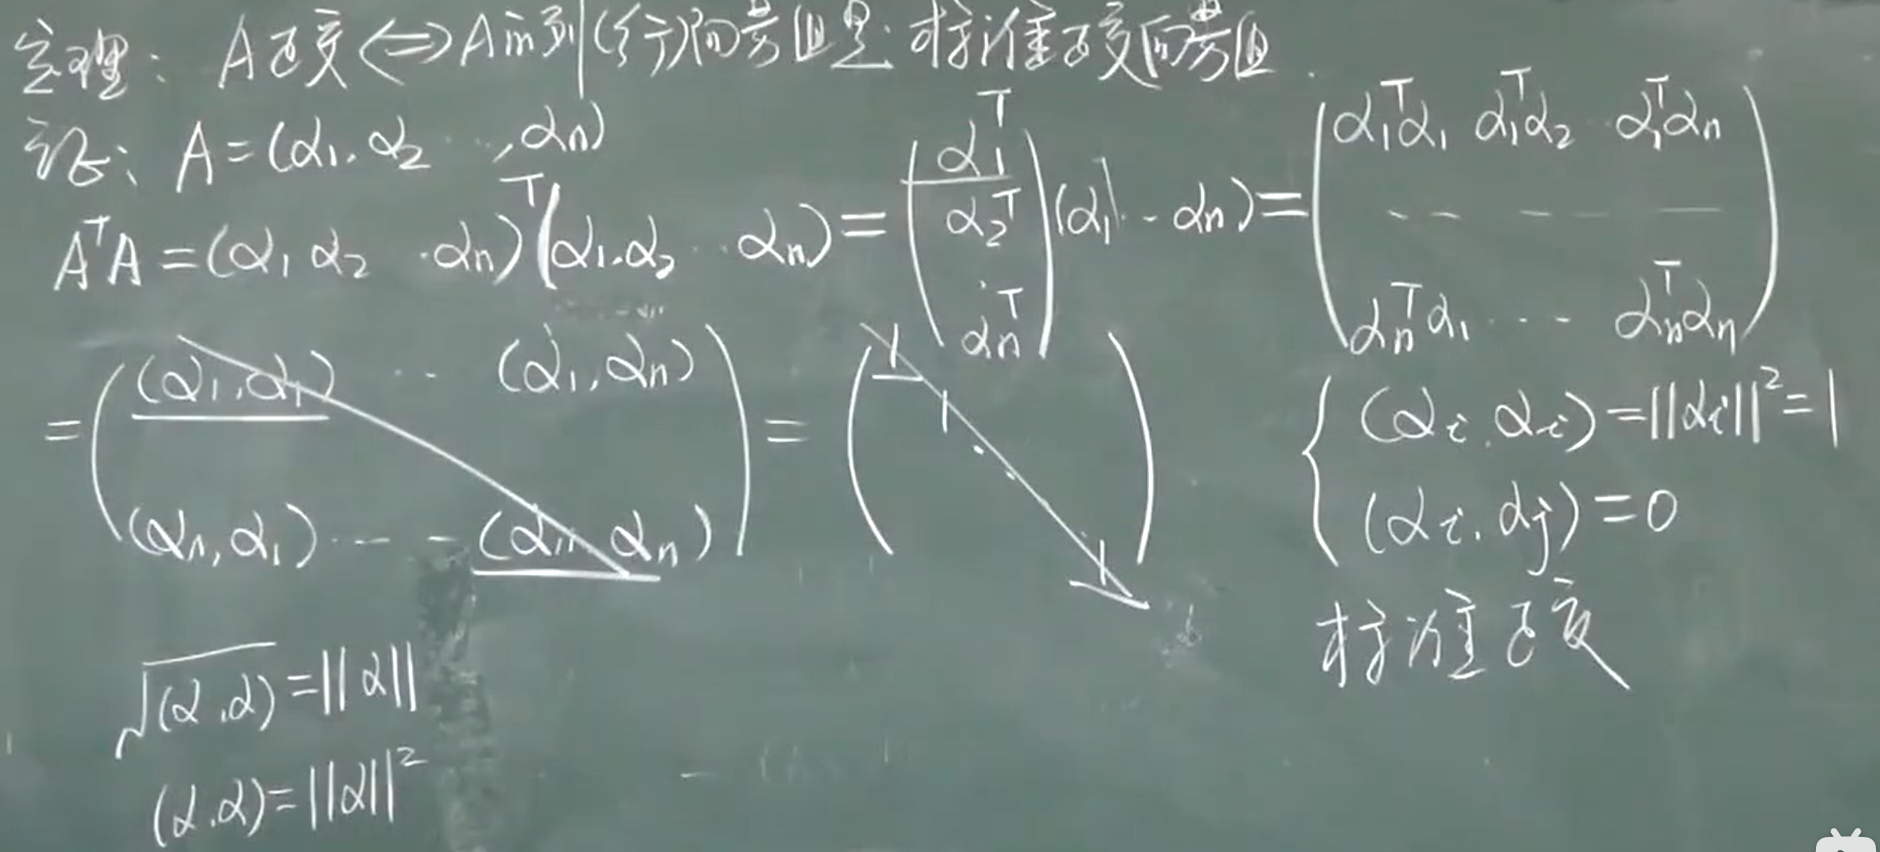 定理: A正交⇔A的列(行)向量组是标准正交向量组.
证: A=(α₁,α₂ ⋯,αₙ)
AᵀA=(α₁ α₂ ⋯ αₙ)ᵀ(α₁,α₂ ⋯ αₙ)=(α₁ᵀ α₂ᵀ ⋮ αₙᵀ)(α₁ ⋯ αₙ)=(α₁ᵀα₁ α₁ᵀα₂ ⋯ α₁ᵀαₙ ⋯ αₙᵀα₁ ⋯ αₙᵀαₙ)
=((α₁,α₁) ⋯ (α₁,αₙ) (αₙ,α₁) ⋯ (αₙ,αₙ))=(1 1 ⋱ 1)
{(αᵢ,αᵢ)=||αᵢ||²=1
(αᵢ,αⱼ)=0
标准正交
√(α,α)=||α||
(α,α)=||α||²